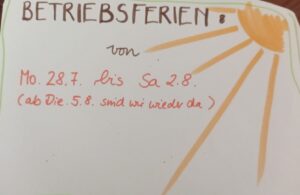 BETRIEBSFERIEN:
von
Mo. 28.7. bis Sa 2.8.
(ab Die. 5.8. sind wir wieder da)